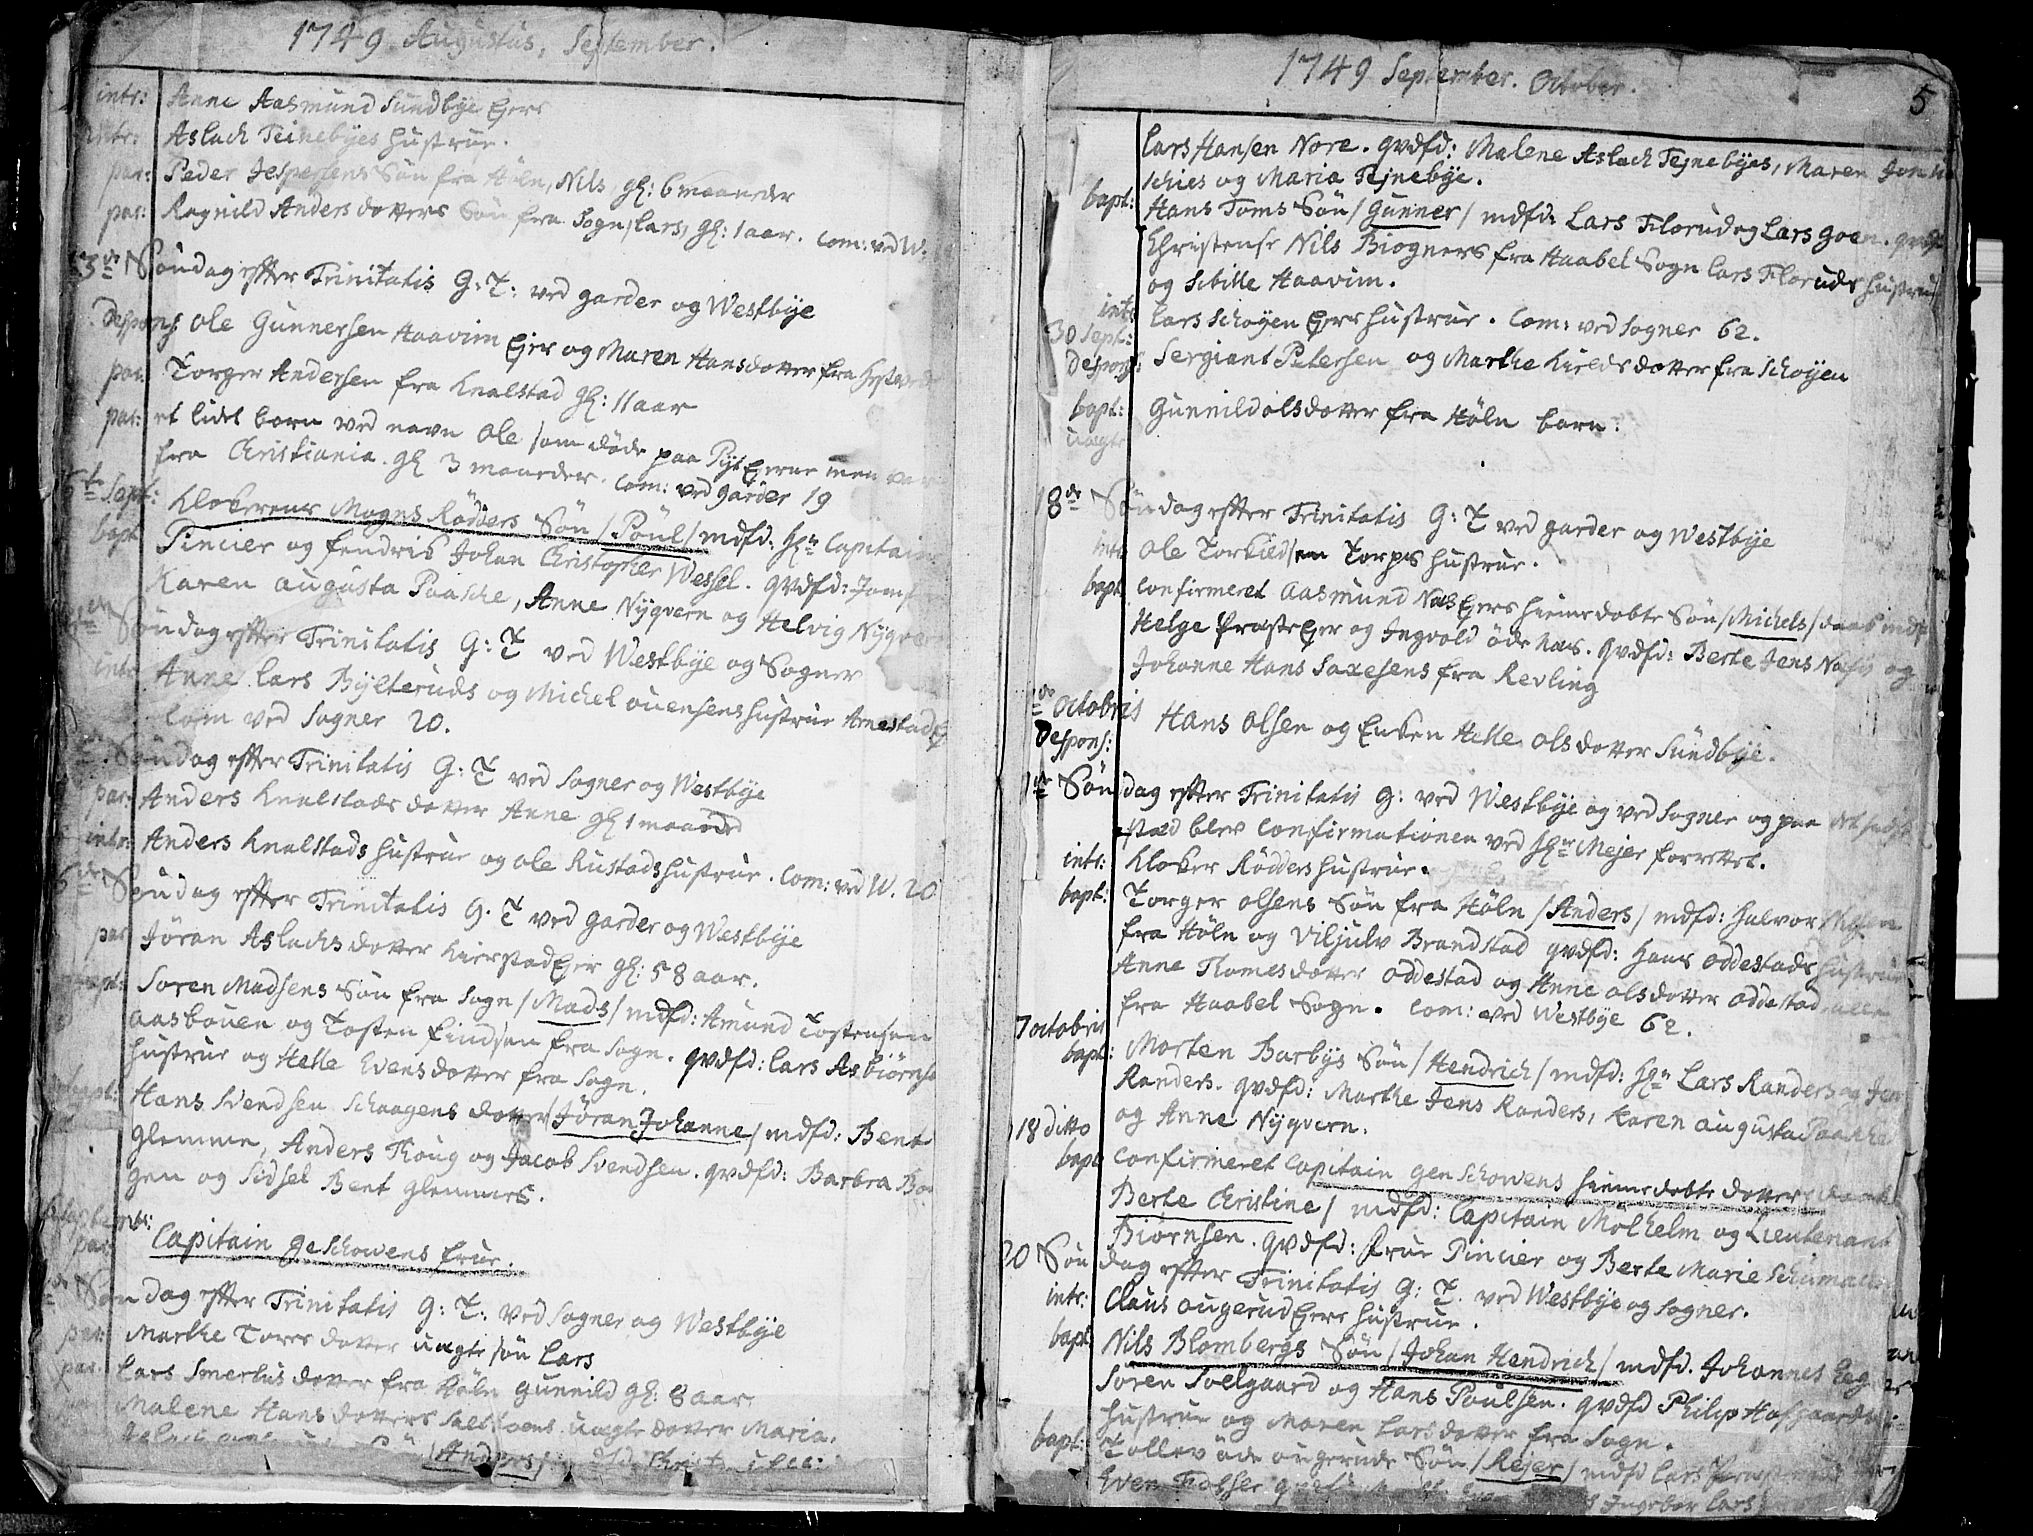 1749 Augustus, September.
intr: Anne Aasmund Sundbye Eyer
intr: Aslach Teinebyes hustrue.
par: Peder Jespersens Søn fra Höln, Nils, gl: 6 maaneder
par: Ragnild Andersdotters Søn fra Sogn, Lars, gl: 1 aar. Com: ved W.
13de Søndag effter Trinitatis G: T: ved garder og Westbye
Despons: Ole Gunnersen Haavim Eyer og Maren Hansdotter fra
par: Torger Andersen fra Knalstad gl: 11 aar
par: et lidet barn ved navn Ole som døde paa Eyerne men var
fra Christiania. gl 3 maaneder. Com: ved garder 19
Sept: Klokerens Mogns Rödders Søn /Poul/ mdfd: Hr Capitain
bapt Pincier og fendrik Johan Christopher Wessel. qvdfd: Jomfr
Karen augusta Paasche, Anne Nyqvern og Helvig Nyqvern
Søndag effter Trinitatis G: T ved Westbye og Sogner
intr Anne Lars Bylteruds og Michel ouensens hustrue Arnestad
Com ved Sogner 20.
Søndag effter Trinitatis G: T ved Sogner og Westbye
par: Anders Knalstads dotter Anne gl 1 maaned
intr: Anders Knalstads hustrue og Ole Rustads hustrue. Com: ved W. 20
Søndag effter Trinitatis G. T ved garder og Westbye
par Jøran Aslachsdotter Kierstad Eyer gl: 58 aar.
bapt: Soren Madsens Søn fra Sogn /Mads/ mdfd: Amund Tostensen
aasbouen og Tosten Eindsen fra Sogn. qvdfd: Lars Asbiørns
hustrue og Helle Evensdotter fra Sogn.
bapt: Hans Svendsen Schaagens dotter /Jøran Johanne/ mdfd: Bent
Glemmen, Anders Thoug og Jacob Svendsen. qvdfd: Barbra
gen og Sidsel Bent Glemmers.
par: Capitain geschowens frue.
Søndag effter Trinitatis G: T: ved Sogner og Westbye
par: Marthe Torers dotter uægte søn Lars
par. Lars Smertus dotter fra Höln gunnild gl: 8 aar
Malene Hansdotters uægte dotter Maria.
/Anders/
1749 September. October. 5
Lars Hansen Nore. qvdfd: Malene Aslach Tejnebyes, Maren Jon
schies og Maria Tejnebye.
bapt: Hans Toms Søn /Gunner/ mdfd: Lars Florud og Lars goen. qvdfd
Christense Nils Biogners fra Haabel Sogn Lars Floruds hustrue
og Sibille Haavim.
intr Lars Schøyen Eyers hustrue. Com: ved Sogner 62.
30 Sept:
Despons: Sergiant Petersen og Marthe Kieldsdotter fra Schøyen
bapt: Gunnild olsdotter fra Höln barn.
uægte
18de Søndag effter Trinitatis G: T ved garder og Westbye
intr Ole Torkiedsen Torps hustrue.
bapt Confirmeret Aasmund Næs Eyers hiemedøbte Søn /Michels/ daab mdfd
Helge Præst Eyer og Ingvold öde næs. qvdfd: Berte Jens Næsis og
Johanne Hans Saxesens fra Revling
Octobris
Despons: Hans Olsen og Enken Helle Olsdotter Sundbye.
Søndag effter Trinitatis G: ved Westbye og ved Sogner og paa det sidste
sted blev Confirmationen ved Hr Mejer forrettet.
intr: Kloker Rödders hustrue.
bapt: Torger olsens Søn fra Höln /Anders/ mdfd: Halvor
fra Höln og Viljulv Brandstad qvdfd: Hans Oddestads hustrue
Anne Thomesdotter Oddestad og Anne olsdotter Oddestad alle
fra Haabel Sogn. Com: ved Westbye 62.
7 Octobris
bapt: Morten Barbys Søn /Hendrich/ mdfd: Hr Lars Randers og Jen
Randers. qvdfd: Marthe Jens Randers, Karen augusta Paasche
og Anne Nyqvern.
18 ditto
bapt Confirmeret Capitain genschowens hiemedøbte dotters daab
Berte Christine/ mdfd: Capitain Molhelm og Lieutenant
Biørnsen. qvdfd: Frue Pincier og Berte Marie Schumacher
20 Søndag effter Trinitatis G: T. ved Westbye og Sogner.
intr: Claus ougerud Eyers hustrue.
bapt Nils Blombergs Søn /Johan Hendrich/ mdfd. Johannes
Soren Soelgaard og Hans Poulsen. qvdfd Philip Hofgaards
hustrue og Maren Larsdotter fra Sogn.
bapt: Tollev öde ougeruds Søn /Rejer/ mdfd Lars
Even Ingebor Lars